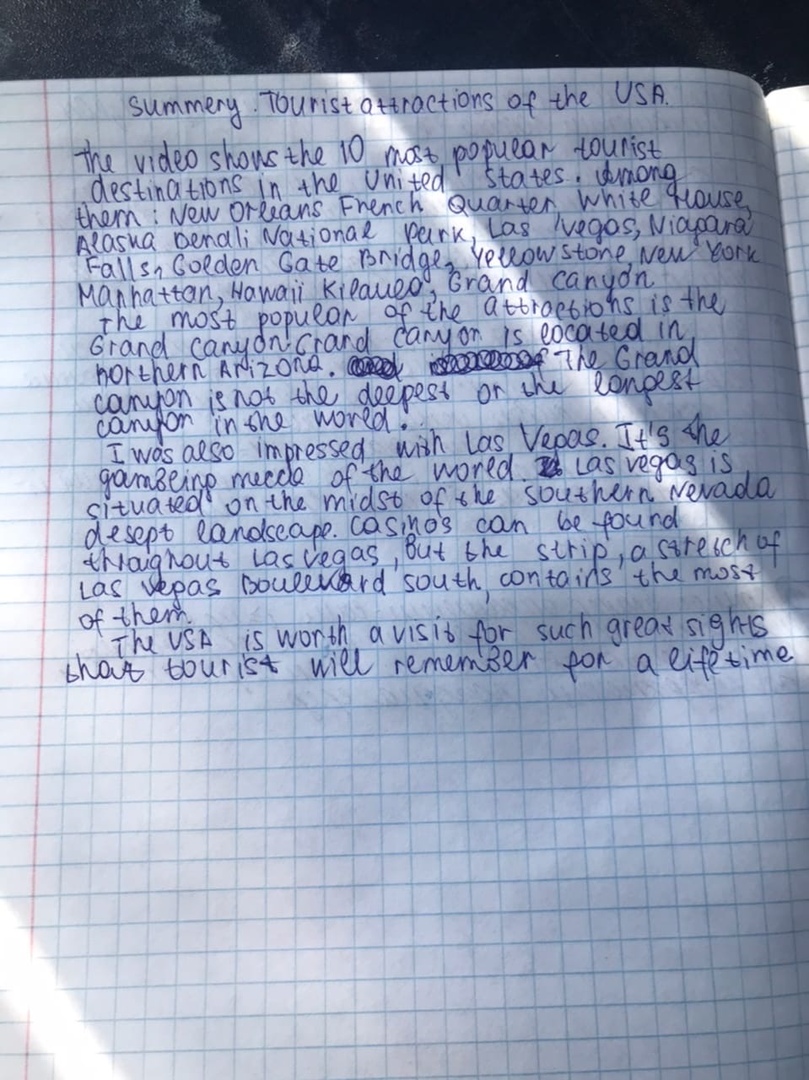 Summery. Tourist attractions of the USA.
The video shows the 10 most popular tourist
destinations in the United States. Among
them: New Orleans French Quarter, White House,
Alaska Denali National Park, Las Vegas, Niapara
Falls, Golden Gate Bridge, Yellowstone, New York
Manhattan, Hawaii Kilaueo, Grand Canyon
The most popular of the attractions is the
Grand Canyon. Grand Canyon is located in
northern Arizona. The Grand
canyon is not the deepest or the longest
canyon in the world.
I was also impressed with Las Vepas. It's the
gambling mecca of the world. Las vegas is
situated on the midst of the southern Nevada
desept landscape. Casinos can be found
throughout Las vegas, but the strip, a stretch of
Las vepas Boulevard south, contains the most
of them.
The USA is worth a visit for such great sights
that tourist will remember for a lifetime